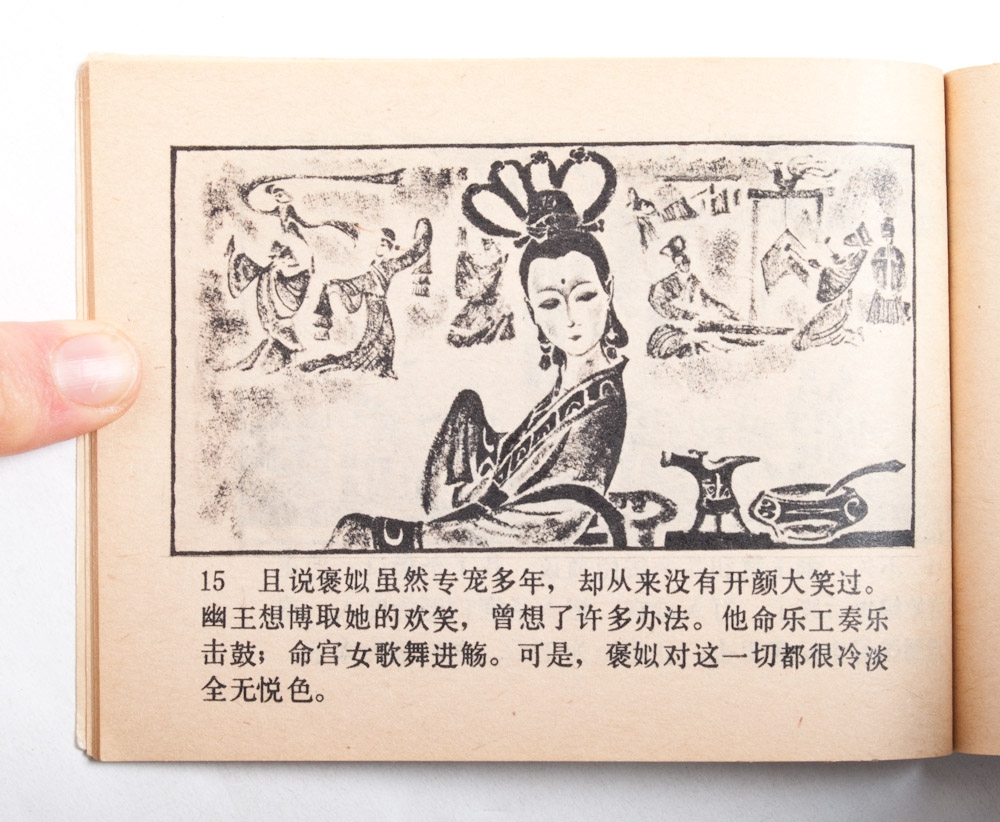 15 且说褒姒虽然专宠多年，却从来没有开颜大笑过。
幽王想博取她的欢笑，曾想了许多办法。他命乐工奏乐
击鼓；命宫女歌舞进觞。可是，褒姒对这一切都很冷淡
全无悦色。